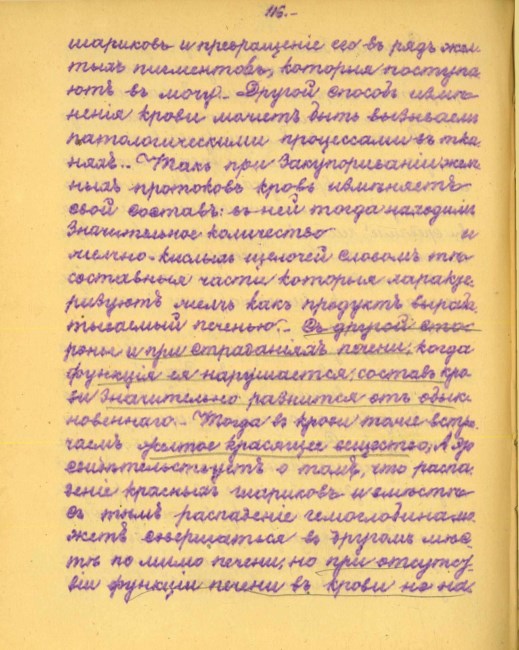 116.-
шариковъ и превращеніе его въ рядъ жел
тыхъ пигментовъ, которыя поступа
ютъ въ мочу.- Другой способъ измѣ
ненія крови можетъ быть вызываем
патологическими процессами въ тка
няхъ.- Такъ при закупориваніи желч
ныхъ протоковъ кровь измѣняетъ
свой составъ: въ ней тогда находили
значительное количество и
желчно-кислыхъ щелочей словомъ тѣ
составныя части которыя характе
ризуютъ желчь какъ продуктъ выраба
тываемый печенью.- Съ другой сто
роны и при страданіяхъ печени, когда
функція ея нарушается, составъ кро
ви значительно разнится отъ обык
новеннаго.- Тогда въ крови тоже встрѣ
чаемъ желтое красящее вещество, А это
свидѣтельствуетъ о томъ, что распа
деніе красныхъ шариковъ и вмѣстѣ
съ тѣмъ распаденіе гемоглобина мо
жетъ совершаться въ другомъ мѣс
тѣ по мимо печени, но при отсутст
віи функціи печени въ крови но на